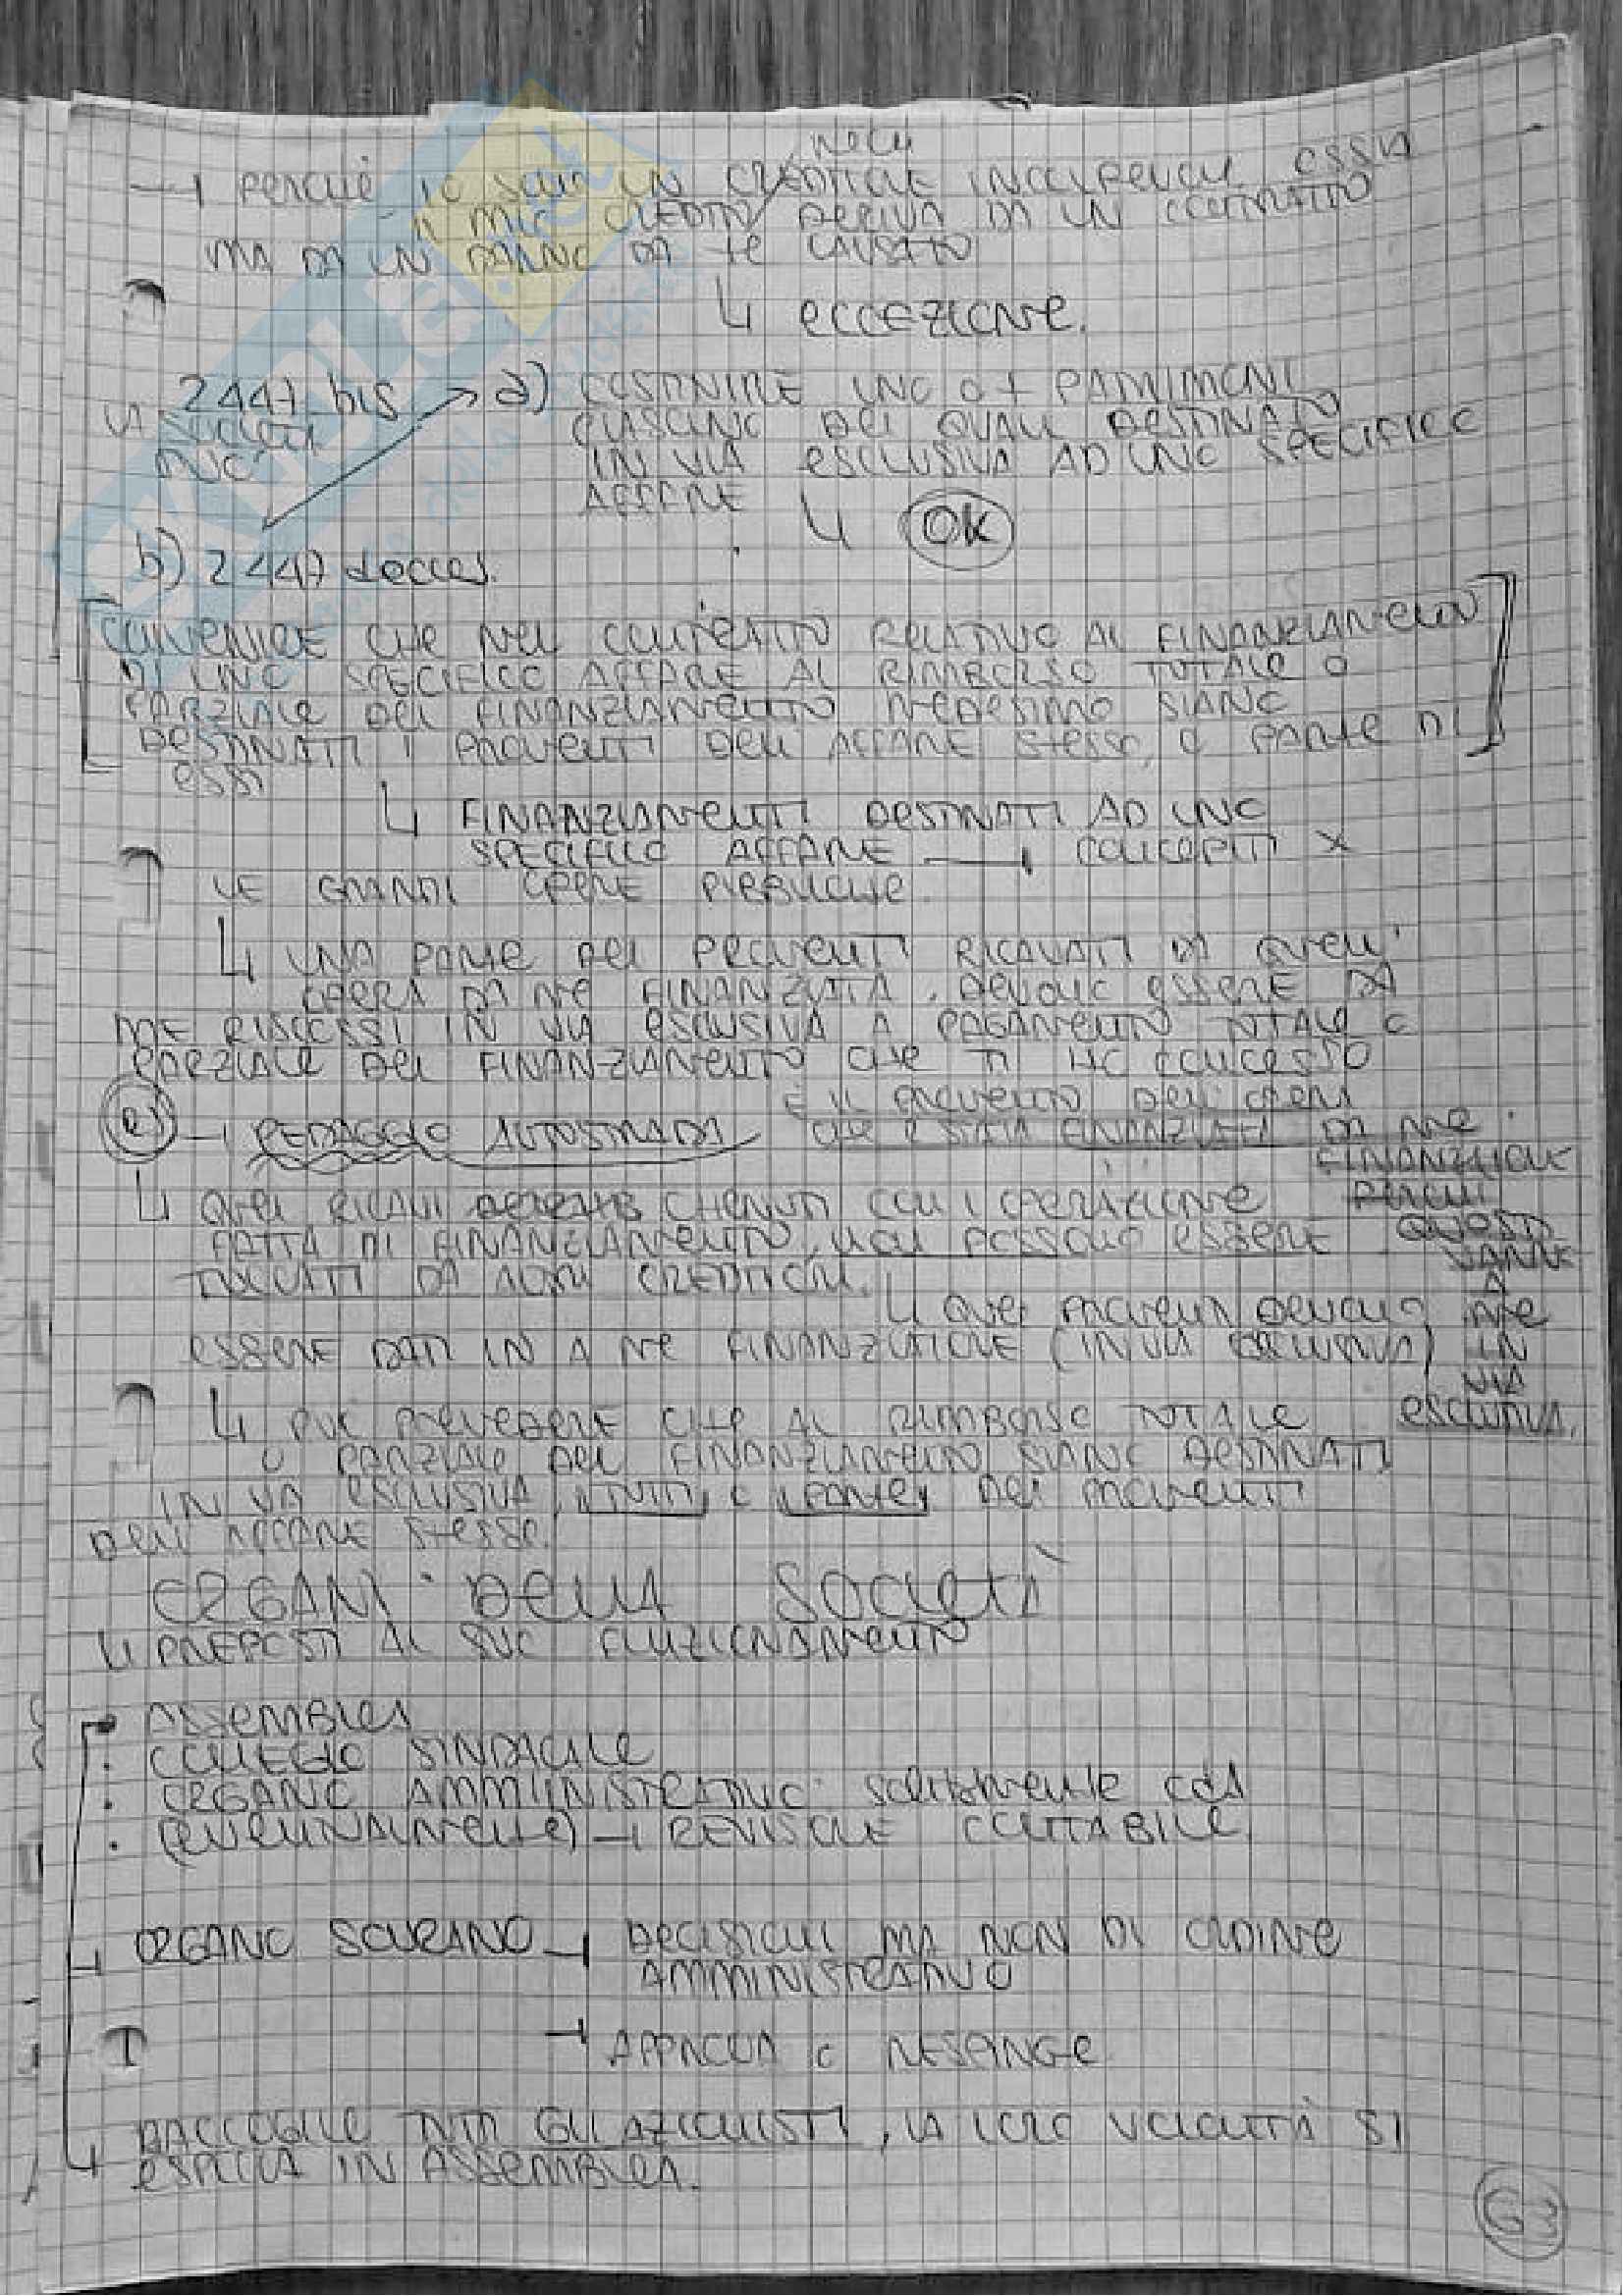 NON
→ PERCHÉ IO SONO UN CREDITORE INCONSAPEVOLE OSSIA
IL MIO CREDITO DERIVA DA UN CONTRATTO
MA DA UN DANNO DA TE CAUSATO
↳ ECCEZIONE.
2447 bis → a) COSTITUIRE UNO O + PATRIMONI
LA SOCIETÀ PUÒ
CIASCUNO DEI QUALI DESTINATO
IN VIA ESCLUSIVA AD UNO SPECIFICO
AFFARE ↳ OK
b) 2447 decies.
CONVENIRE CHE NEL CONTRATTO RELATIVO AL FINANZIAMENTO
DI UNO SPECIFICO AFFARE AL RIMBORSO TOTALE O
PARZIALE DEL FINANZIAMENTO MEDESIMO SIANO
DESTINATI I PROVENTI DELL'AFFARE STESSO, O PARTE DI
ESSI
↳ FINANZIAMENTI DESTINATI AD UNO
SPECIFICO AFFARE → CONCEPITI X
LE GRANDI OPERE PUBBLICHE.
↳ UNA PARTE DEI PROVENTI RICAVATI DA QUELL'
OPERA DA ME FINANZIATA, DEVONO ESSERE DA
ME RISCOSSI IN VIA ESCLUSIVA A PAGAMENTO TOTALE O
PARZIALE DEL FINANZIAMENTO CHE TI HO CONCESSO
È IL PROVENTO DELL'OPERA
es → PEDAGGIO AUTOSTRADA CHE È STATA FINANZIATA DA ME
FINANZIATORE
↳ QUEI RICAVI OTTENUTI CON L'OPERAZIONE PERCHÉ
FATTA DI FINANZIAMENTO, NON POSSONO ESSERE QUESTI
VANNO
TOCCATI DA ALTRI CREDITORI. A
↳ QUEI PROVENTI DEVONO ME
ESSERE DATI IN A ME FINANZIATORE (IN VIA ESCLUSIVA) IN
VIA
↳ PUÒ PREVEDERE CHE AL RIMBORSO TOTALE ESCLUSIVA.
O PARZIALE DEL FINANZIAMENTO SIANO DESTINATI
IN VIA ESCLUSIVA, "TUTTI" O "PARTE" DEI PROVENTI
DELL'AFFARE STESSO.
ORGANI DELLA SOCIETÀ
↳ PREPOSTI AL SUO FUNZIONAMENTO
• ASSEMBLEA
• COLLEGIO SINDACALE
• ORGANO AMMINISTRATIVO: SOLITAMENTE CdA
• (EVENTUALMENTE) → REVISORE CONTABILE.
→ ORGANO SOVRANO → DECISIONI MA NON DI ORDINE
AMMINISTRATIVO
→ APPROVA O RESPINGE
↳ RACCOGLIE TUTTI GLI AZIONISTI, LA LORO VOLONTÀ SI
ESPLICA IN ASSEMBLEA.
63